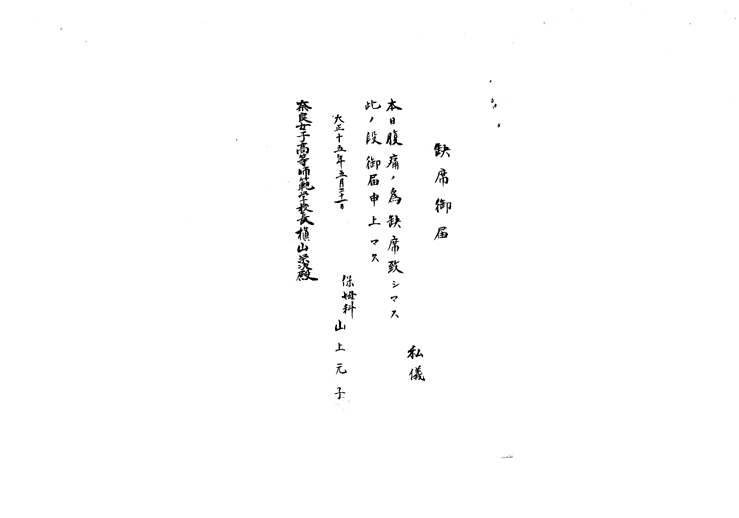 缺席御届
私儀
本日腹痛ノ為缺席致シマス
此ノ段御届申上マス
大正十五年五月二十一日
保姆科 山上元子
奈良女子高等師範学校長槇山栄次殿